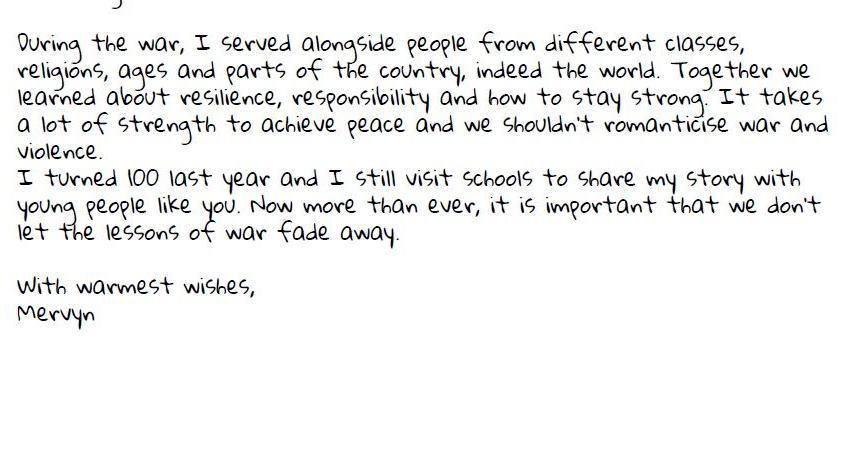 During the war, I served alongside people from different classes,
religions, ages and parts of the country, indeed the world. Together we
learned about resilience, responsibility and how to stay strong. It takes
a lot of strength to achieve peace and we shouldn't romanticise war and
violence.
I turned 100 last year and I still visit schools to share my story with
young people like you. Now more than ever, it is important that we don't
let the lessons of war fade away.
With warmest wishes,
Mervyn